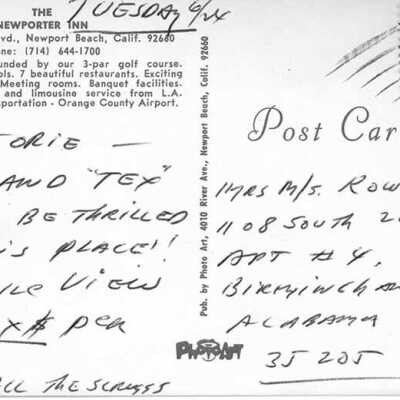 THE
NEWPORTER INN
TUESDAY 6/24
lvd., Newport Beach, Calif. 92660
ne: (714) 644-1700
unded by our 3-par golf course.
ols. 7 beautiful restaurants. Exciting
Meeting rooms. Banquet facilities.
and limousine service from L.A.
sportation - Orange County Airport.
TORIE —
AND "TEX"
BE THRILLED
IS PLACE!!
VIEW
X$ PER
THE SCRUGGS
Pub. by Photo Art, 4010 River Ave., Newport Beach, Calif. 92660
PHOTO ART
Post Car
MRS M/S. ROW
1108 SOUTH 2
APT # 4,
BIRMINGHAM
ALABAMA
35205